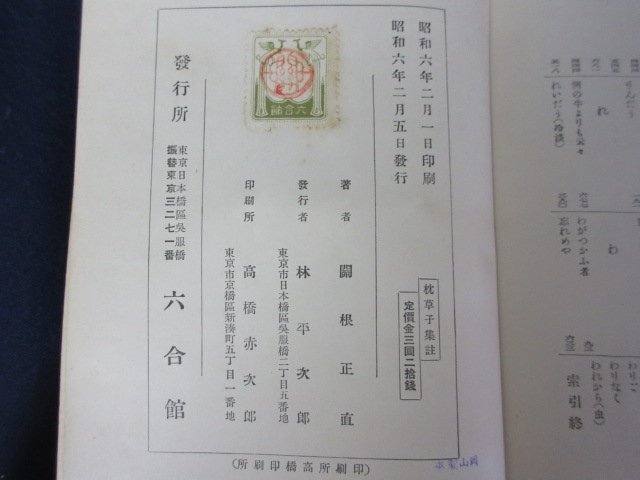 昭和六年二月一日印刷
昭和六年二月五日發行
枕草子集註
定價金三圓二拾錢
著者 關根正直
發行者 林平次郎
東京市日本橋區吳服橋二丁目五番地
印刷所 高橋赤次郎
東京市京橋區新湊町五丁目一番地
發行所 東京日本橋區吳服橋
振替東京三二七一番
六合館
六合館
(印刷所高橋印刷所)
れ
例の牛よりも云々
れいだう(冷淡)
わ
わがつかふ者
忘れめや
わりご
わりなく
われから(虫)
索引終